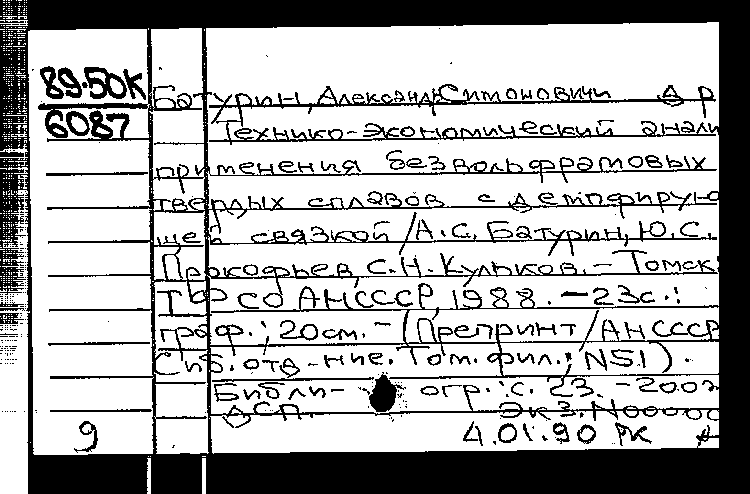 89-50К
6087
Батурин, Александр Симонович и др
Технико-экономический анали
применения безвольфрамовых
твердых сплавов с демпфирую
щей связкой / А.С. Батурин, Ю.С.
Прокофьев, С.Н. Кульков. – Томск:
ТФ СО АН СССР, 1988. – 23с.:
граф.; 20см. – (Препринт / АН СССР
Сиб. отд-ние. Том. фил.; N51).
Библи- огр.: с. 23. – 200э
ДСП. Экз. N00000
9 4.01.90 РК